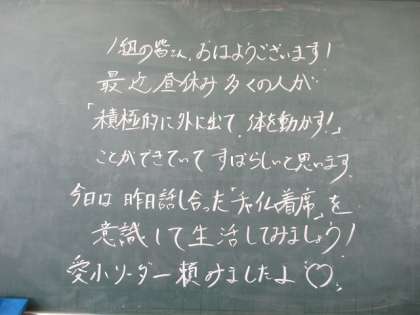 1組の皆さん、おはようございます!
最近昼休み多くの人が
「積極的に外に出て、体を動かす!」
ことができていてすばらしいと思います。
今日は昨日話し合った「チャイム着席」を
意識して生活してみましょう!
愛小リーダー頼みましたよ♡。